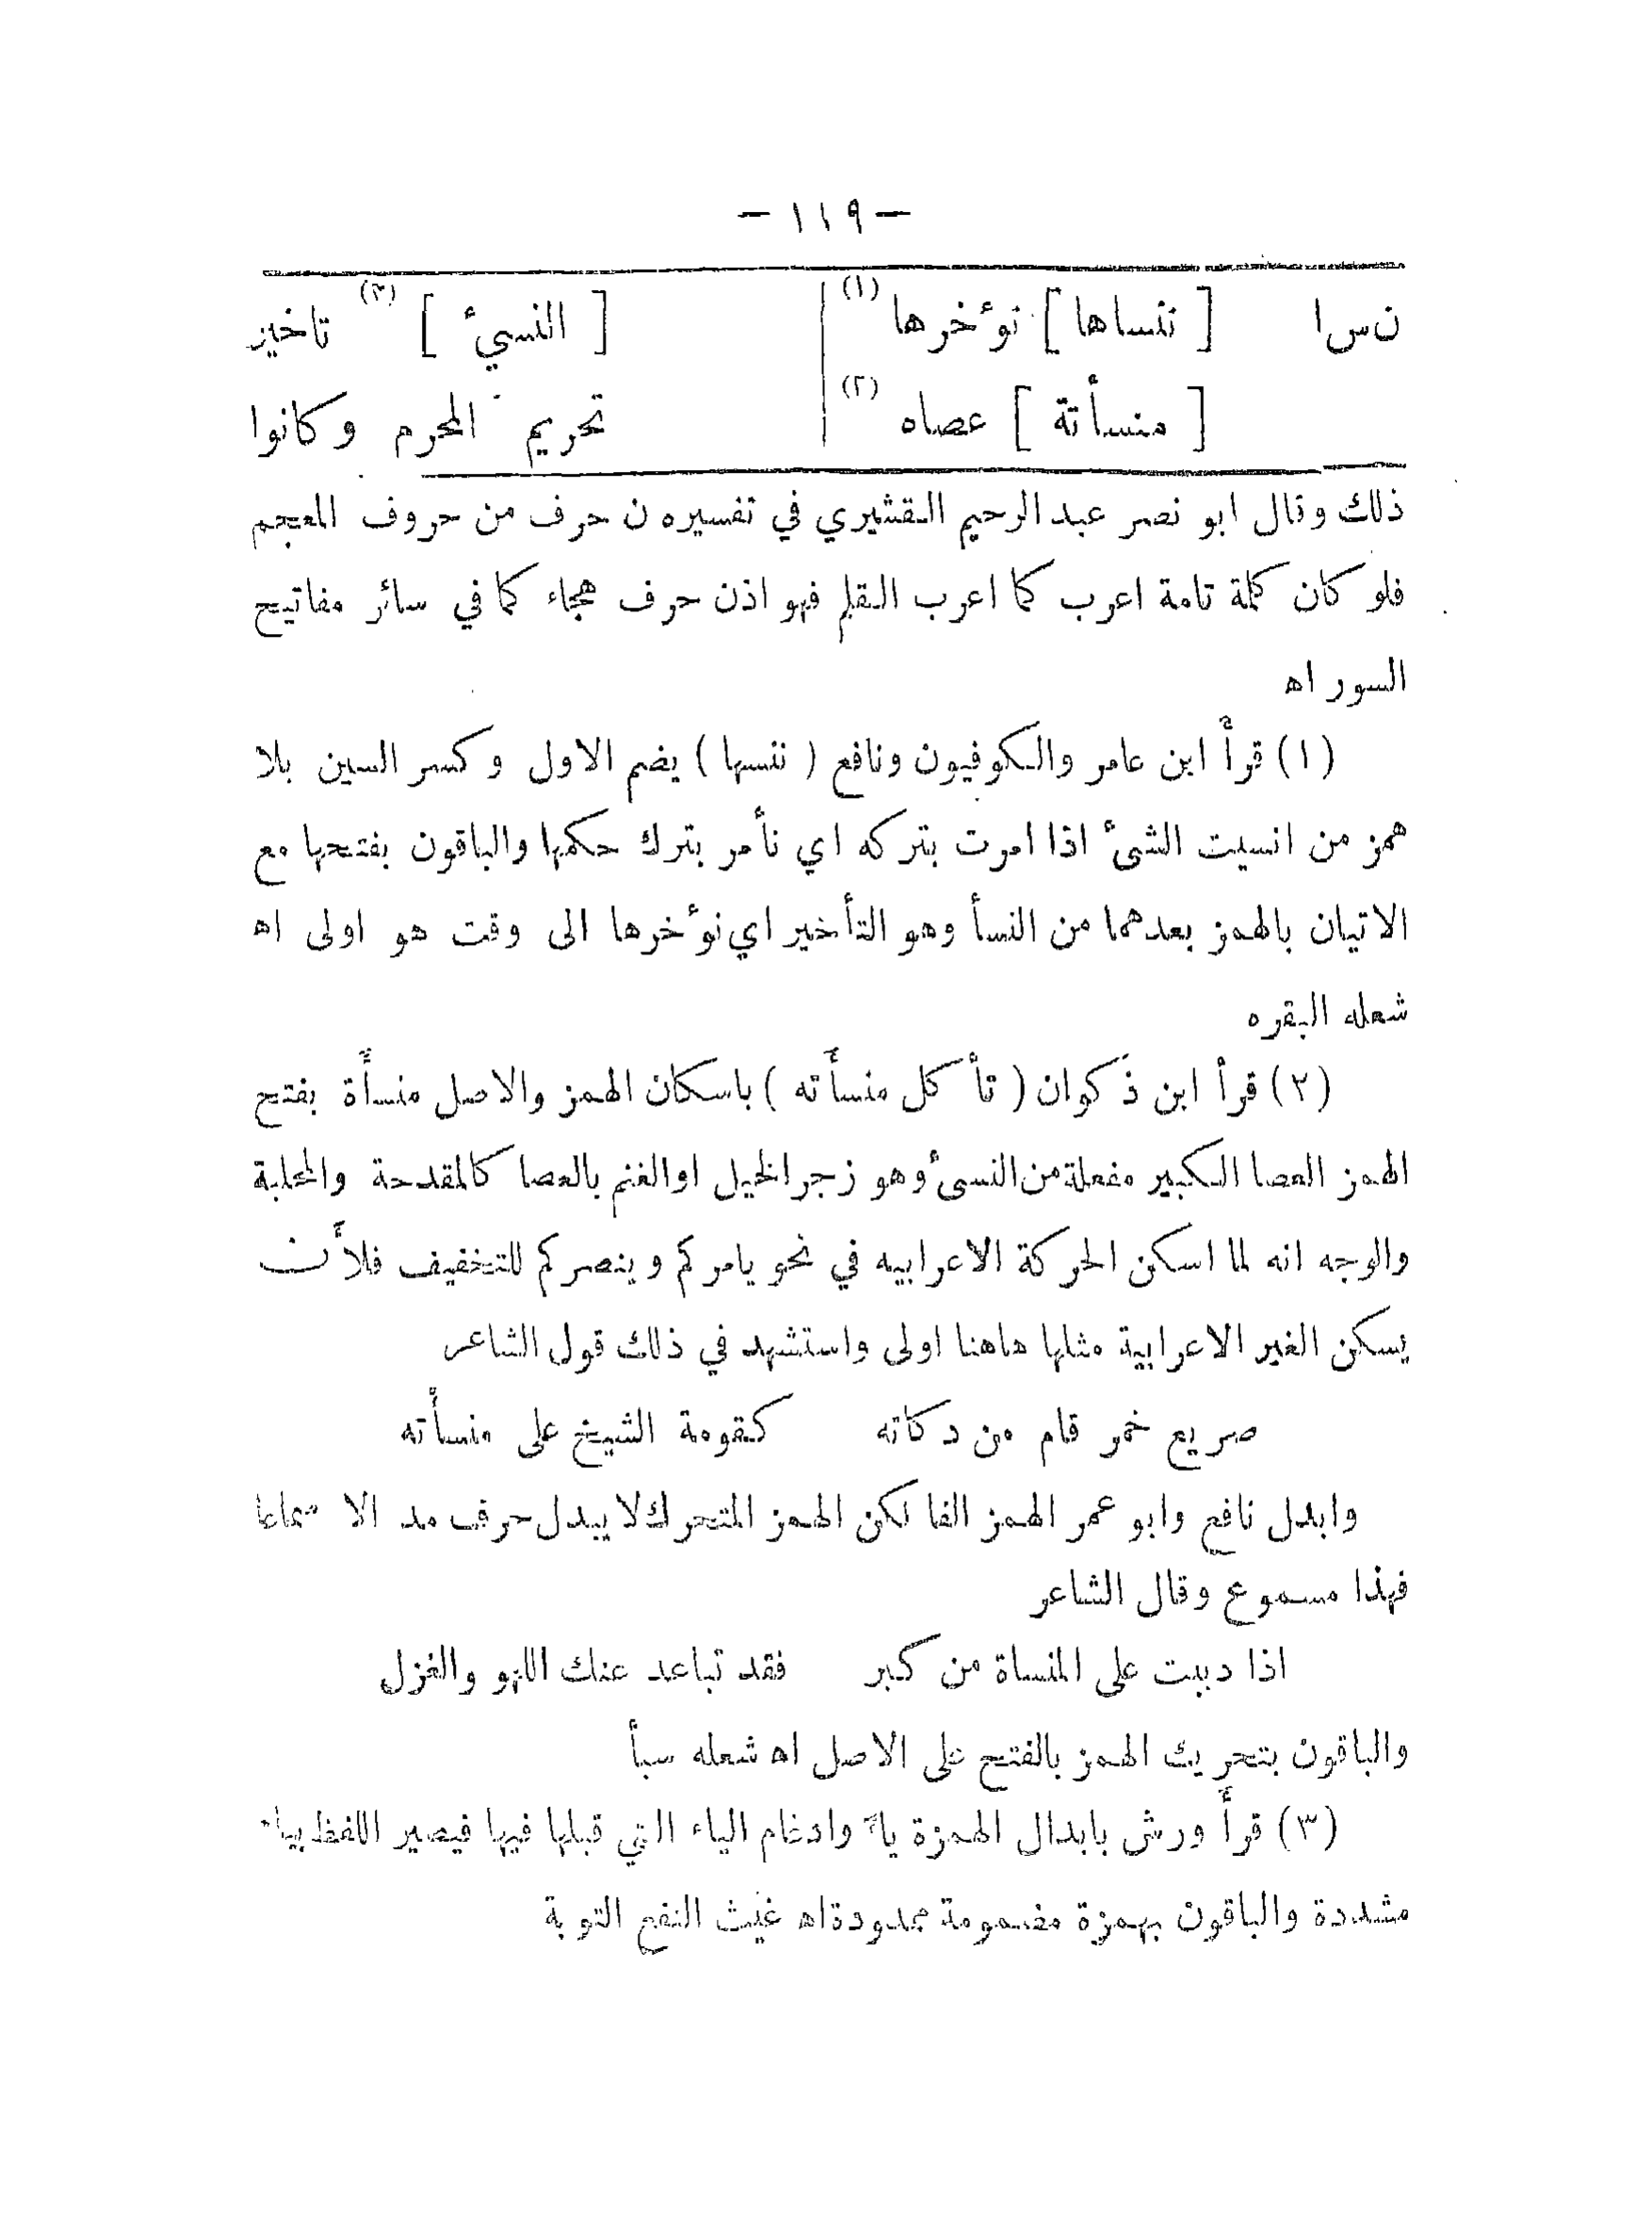 — ١١٩ —
ن س ا [ ننساها ] نوٴخرها (١)
[ منسأتة ] عصاه (٢)
[ النسيٴ ] (٣) تاخيز
تحريم المحرم وكانوا
ذلك وقال ابو نصر عبد الرحيم القشيري في تفسيره ن حرف من حروف المعجم
فلو كان كلمة تامة اعرب كما اعرب القلم فهو اذن حرف هجاء كما في سائر مفاتيح
السور اه
(١) قرأ ابن عامر والكوفيون ونافع ( ننسها ) يضم الاول وكسر السين بلا
همز من انسيت الشىٴ اذا امرت بتركه اي نأمر بترك حكمها والباقون بفتحها مع
الاتيان بالهمز بعدهما من النسأ وهو التأخير اي نوٴخرها الى وقت هو اولى اه
شعله البقره
(٢) قرأ ابن ذكوان ( تأكل منسأته ) باسكان الهمز والاصل منسأة بفتح
الهمز العصا الكبير مفعلة من النسىٴ وهو زجر الخيل او الغنم بالعصا كالمقدحة والمحلبة
والوجه انه لما اسكن الحركة الاعرابيه في نحو يامركم وينصركم للتخفيف فلأن
يسكن الغير الاعرابية مثلها هاهنا اولى واستشهد في ذلك قول الشاعر
صريع خمر قام من دكاته كقومة الشيخ على منسأته
وابدل نافع وابو عمر الهمز الفا لكن الهمز المتحرك لا يبدل حرف مد الا سماعا
فهذا مسموع وقال الشاعر
اذا دببت على المنساة من كبر فقد تباعد عنك اللهو والغزل
والباقون بتحريك الهمز بالفتح على الاصل اه شعله سبأ
(٣) قرأ ورش بابدال الهمزة ياءً وادغام الياء التي قبلها فيها فيصير اللفظ بياء
مشددة والباقون بهمزة مضمومة ممدودة اه غيث النفع التوبة